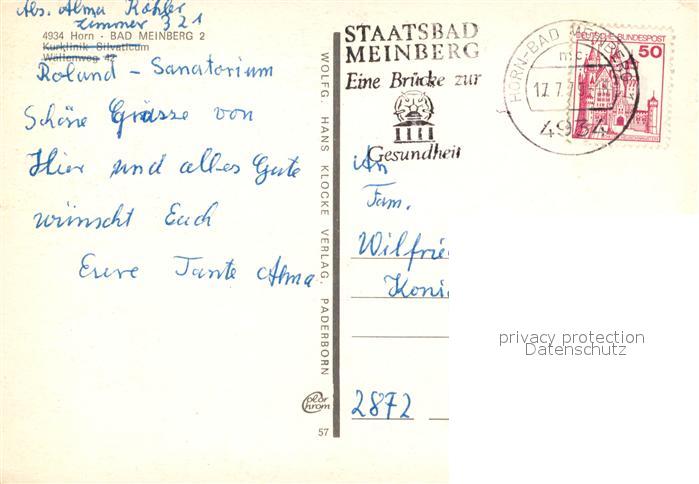 Abs. Alma Köhler
Zimmer 321
4934 Horn - BAD MEINBERG 2
Kurklinik Silvaticum
Wällenweg 42
Roland - Sanatorium
Schöne Grüsse von
Hier und alles Gute
wünscht Euch
Euere Tante Alma
WOLFG. HANS KLOCKE VERLAG, PADERBORN
Color
Chrom
57
STAATSBAD
MEINBERG
Eine Brücke zur
Gesundheit
HORN-BAD MEINBERG
17.7.79
4934
DEUTSCHE BUNDESPOST
50
An
Fam.
Wilfrie
Koni
2872
privacy protection
Datenschutz